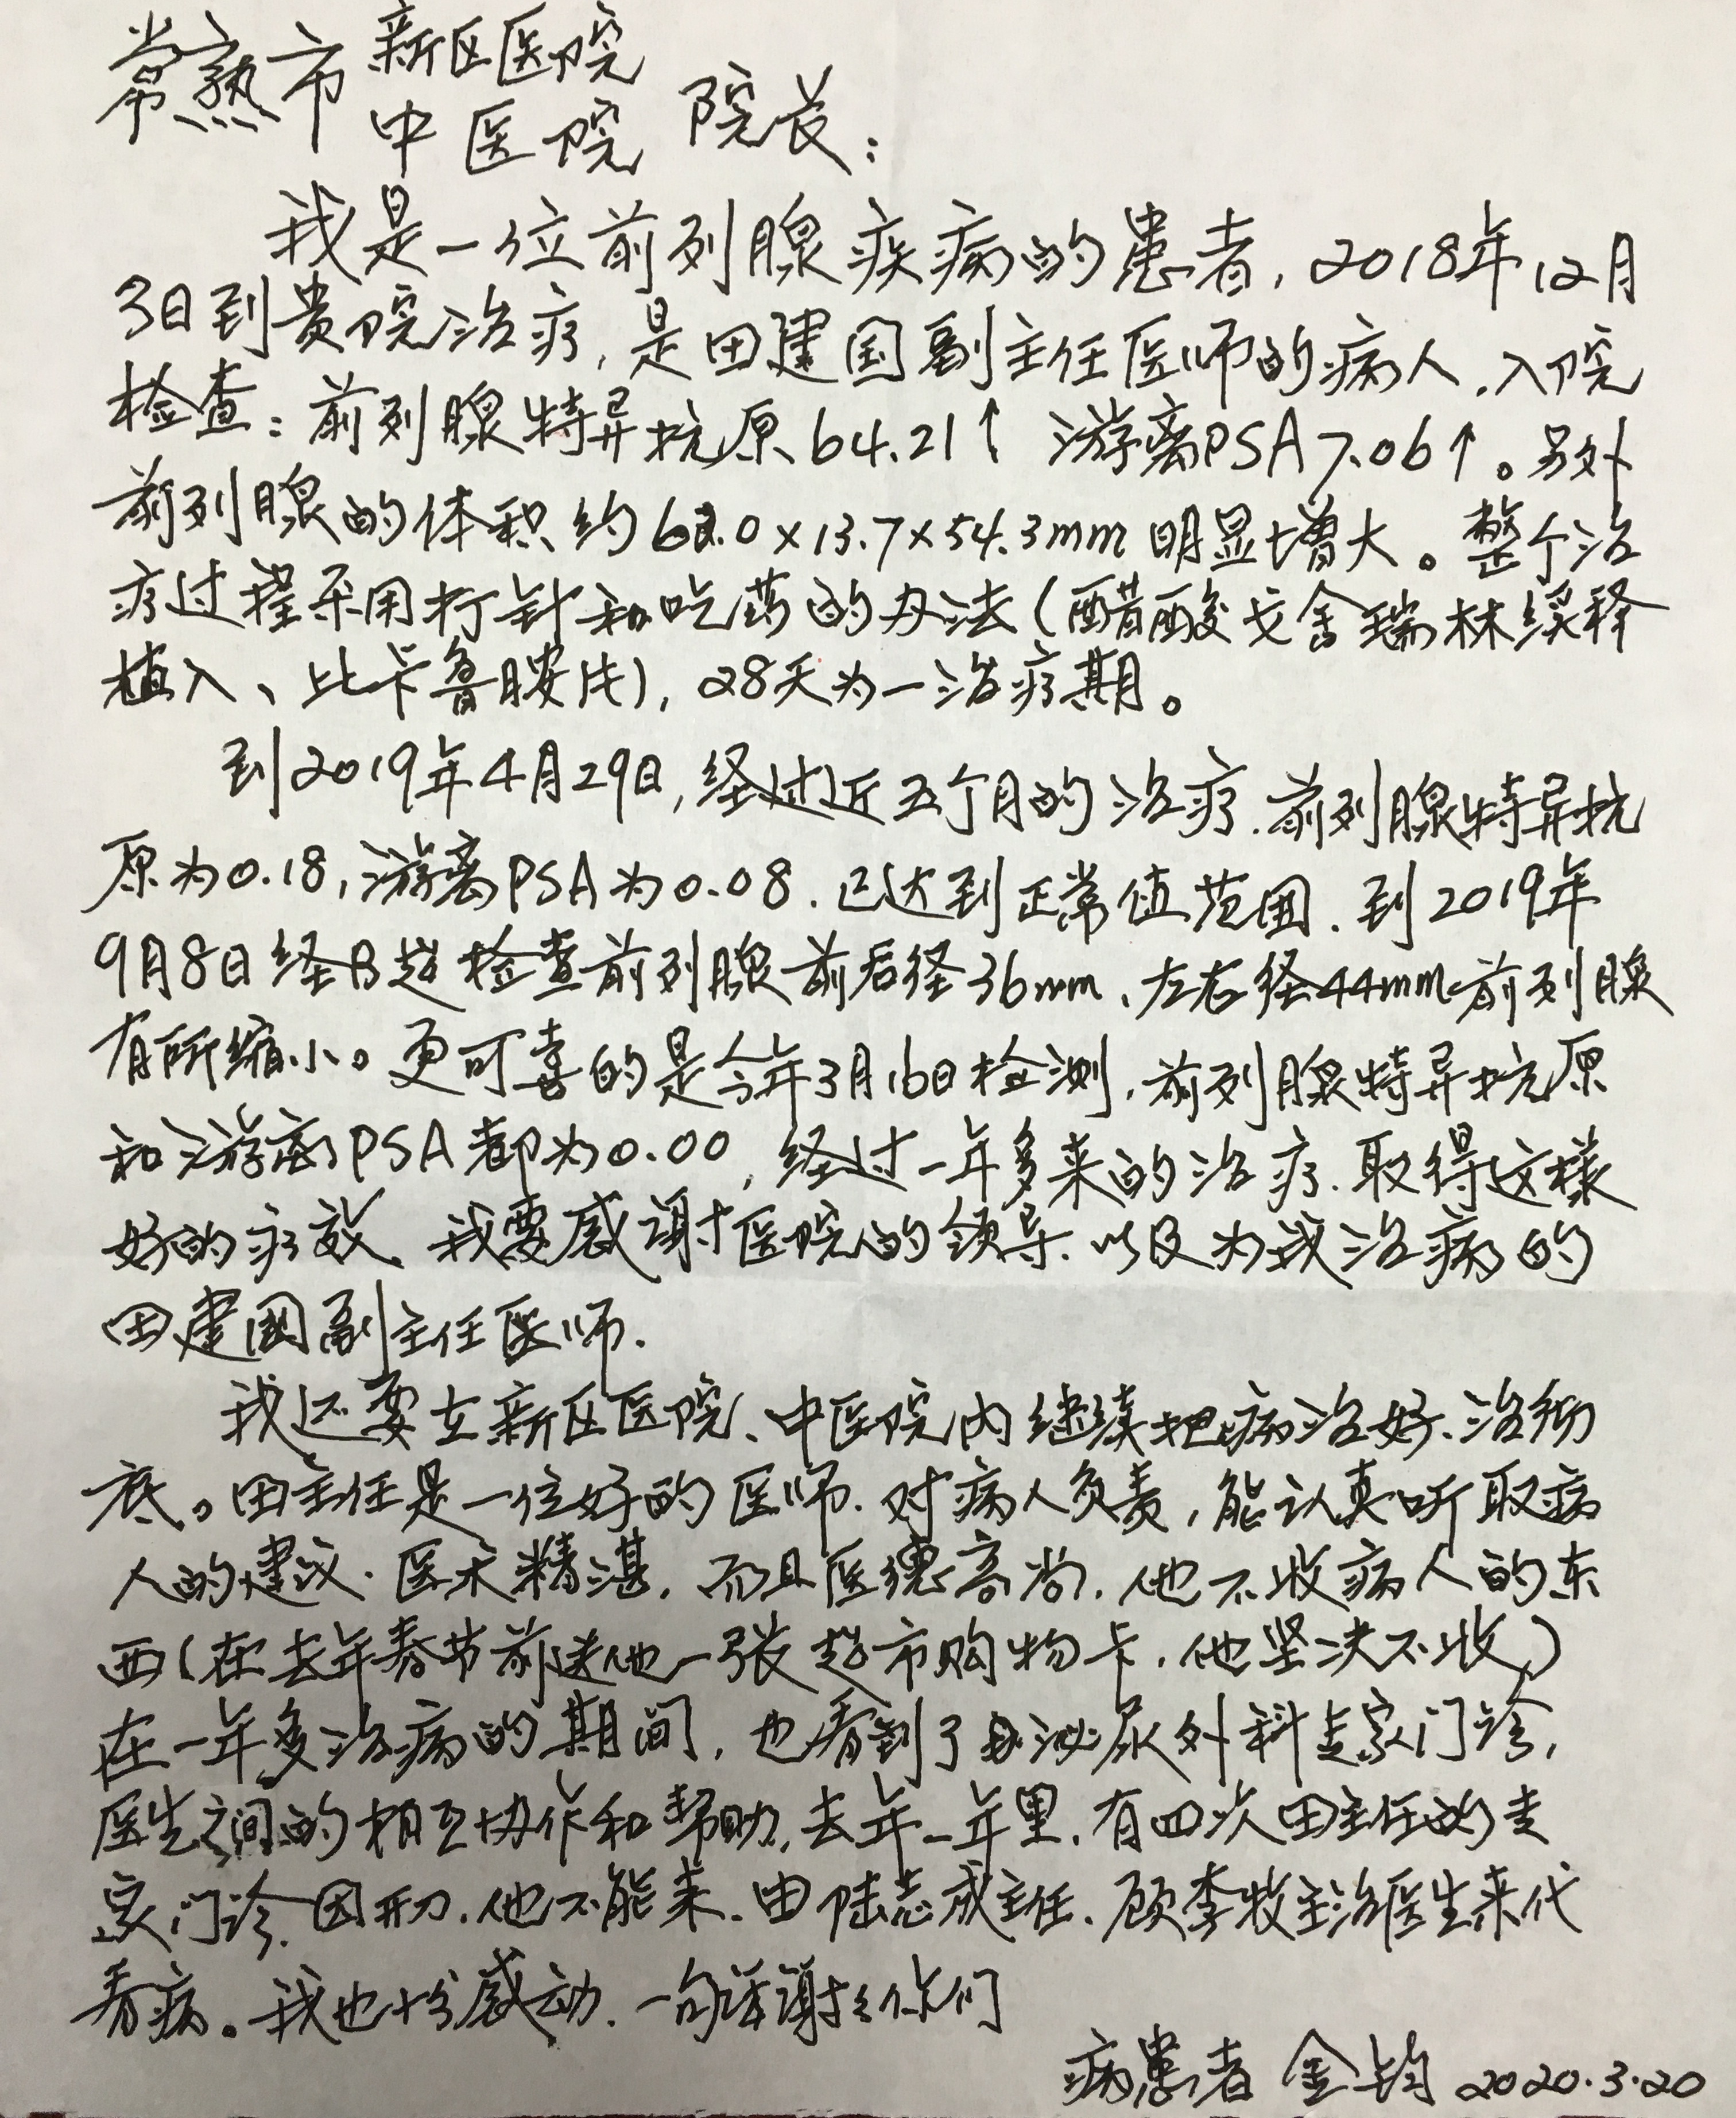 常熟市新区医院
中医院 院长：
我是一位前列腺疾病的患者，2018年12月
3日到贵院治疗，是田建国副主任医师的病人，入院
检查：前列腺特异抗原64.21↑ 游离PSA7.06↑。另外
前列腺的体积约62.0×13.7×54.3mm明显增大。整个治
疗过程采用打针和吃药的办法（醋酸戈舍瑞林缓释
植入、比卡鲁胺片），28天为一治疗期。
到2019年4月29日，经过近五个月的治疗.前列腺特异抗
原为0.18，游离PSA为0.08.已达到正常值范围.到2019年
9月8日经B超检查前列腺前后径36mm、左右径44mm前列腺
有所缩小。更可喜的是今年3月16日检测，前列腺特异抗原
和游离PSA都为0.00，经过一年多来的治疗.取得这樣
好的疗效.我要感谢医院的领导.以及为我治病的
田建国副主任医师.
我还要在新区医院、中医院内继续把病治好、治彻
底。田主任是一位好的医师.对病人负责，能认真听取病
人的建议.医术精湛，而且医德高尚，他不收病人的东
西（在去年春节前送他一张超市购物卡，他坚决不收）
在一年多治病的期间，也看到了泌尿外科专家门诊，
医生之间的相互协作和帮助，去年一年里，有四次田主任的专
家门诊.因开刀.他不能来.由陆志成主任、顾李牧主治医生来代
看病。我也十分感动.一句话谢谢你们
病患者 金钧 2020.3.20